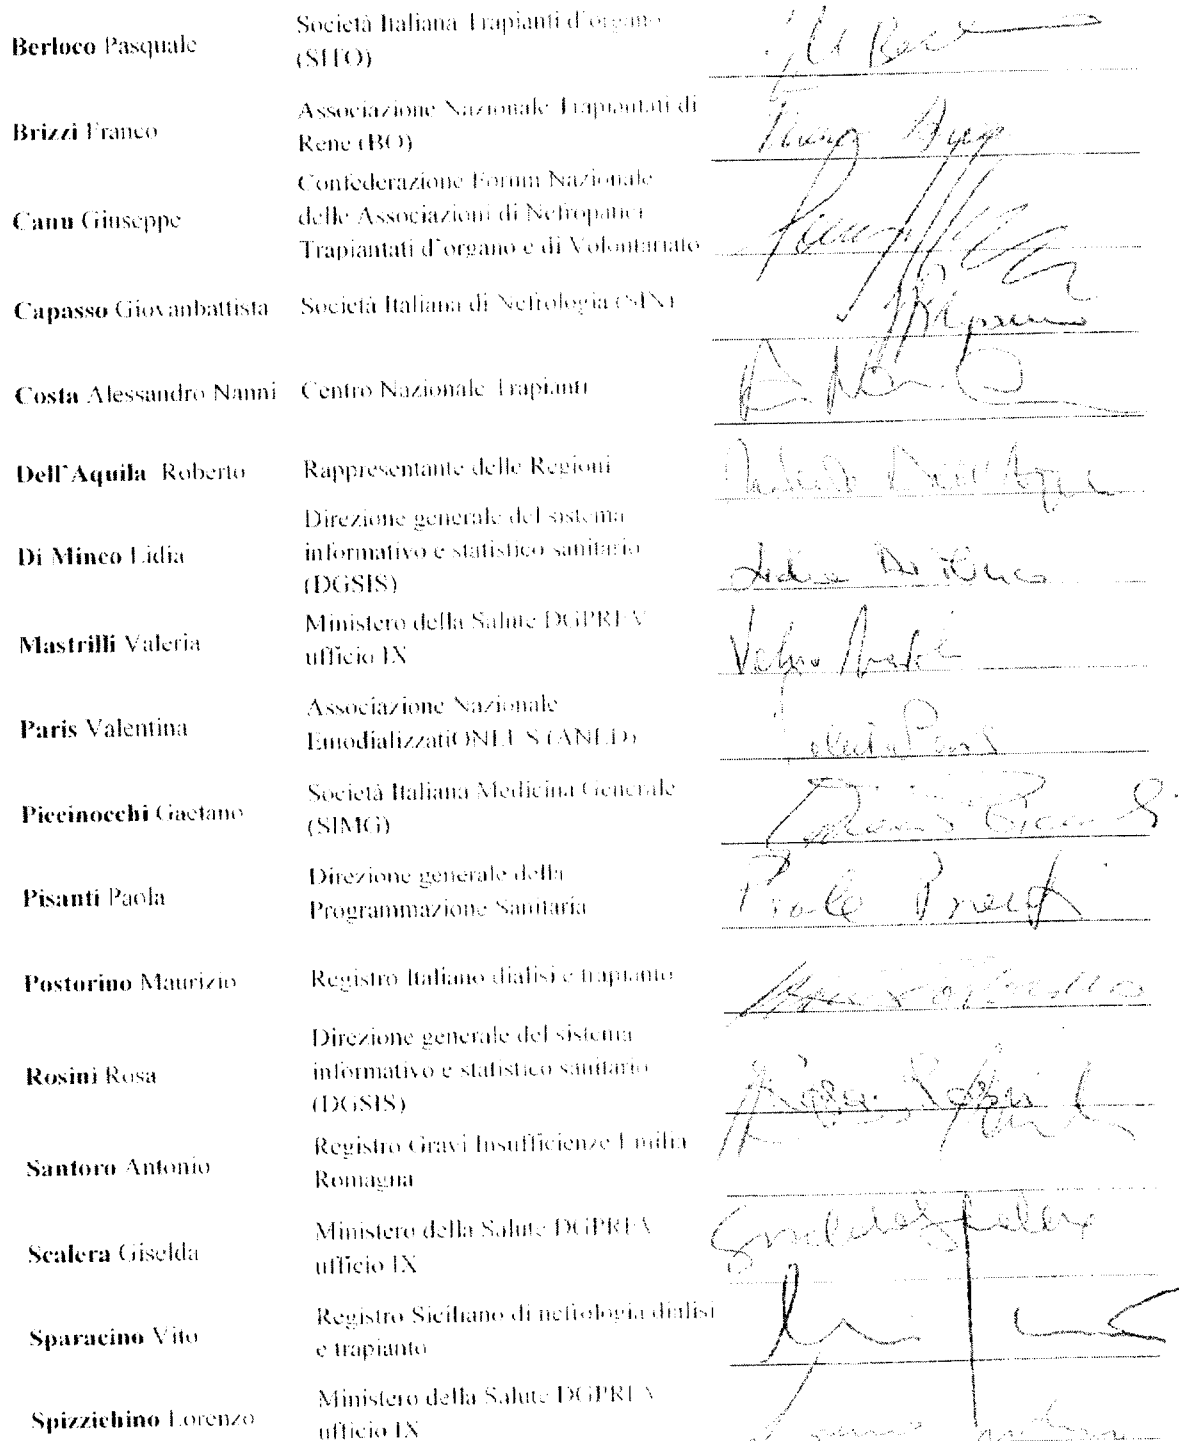 Berloco Pasquale
Società Italiana Trapianti d'organo
(SITO)
Brizzi Franco
Associazione Nazionale Trapiantati di
Rene (BO)
Canu Giuseppe
Confederazione Forum Nazionale
delle Associazioni di Nefropatici
Trapiantati d'organo e di Volontariato
Capasso Giovanbattista
Società Italiana di Nefrologia (SIN)
Costa Alessandro Nanni
Centro Nazionale Trapianti
Dell'Aquila Roberto
Rappresentante delle Regioni
Roberto Dell'Aquila
Di Minco Lidia
Direzione generale del sistema
informativo e statistico sanitario
(DGSIS)
Lidia Di Minco
Mastrilli Valeria
Ministero della Salute DGPREV
ufficio IX
Paris Valentina
Associazione Nazionale
EmodializzatiONLUS (ANED)
Piccinocchi Gaetano
Società Italiana Medicina Generale
(SIMG)
Pisanti Paola
Direzione generale della
Programmazione Sanitaria
Paola Pisanti
Postorino Maurizio
Registro Italiano dialisi e trapianto
Rosini Rosa
Direzione generale del sistema
informativo e statistico sanitario
(DGSIS)
Santoro Antonio
Registro Gravi Insufficienze Emilia
Romagna
Scalera Giselda
Ministero della Salute DGPREV
ufficio IX
Sparacino Vito
Registro Siciliano di nefrologia dialisi
e trapianto
Spizzichino Lorenzo
Ministero della Salute DGPREV
ufficio IX